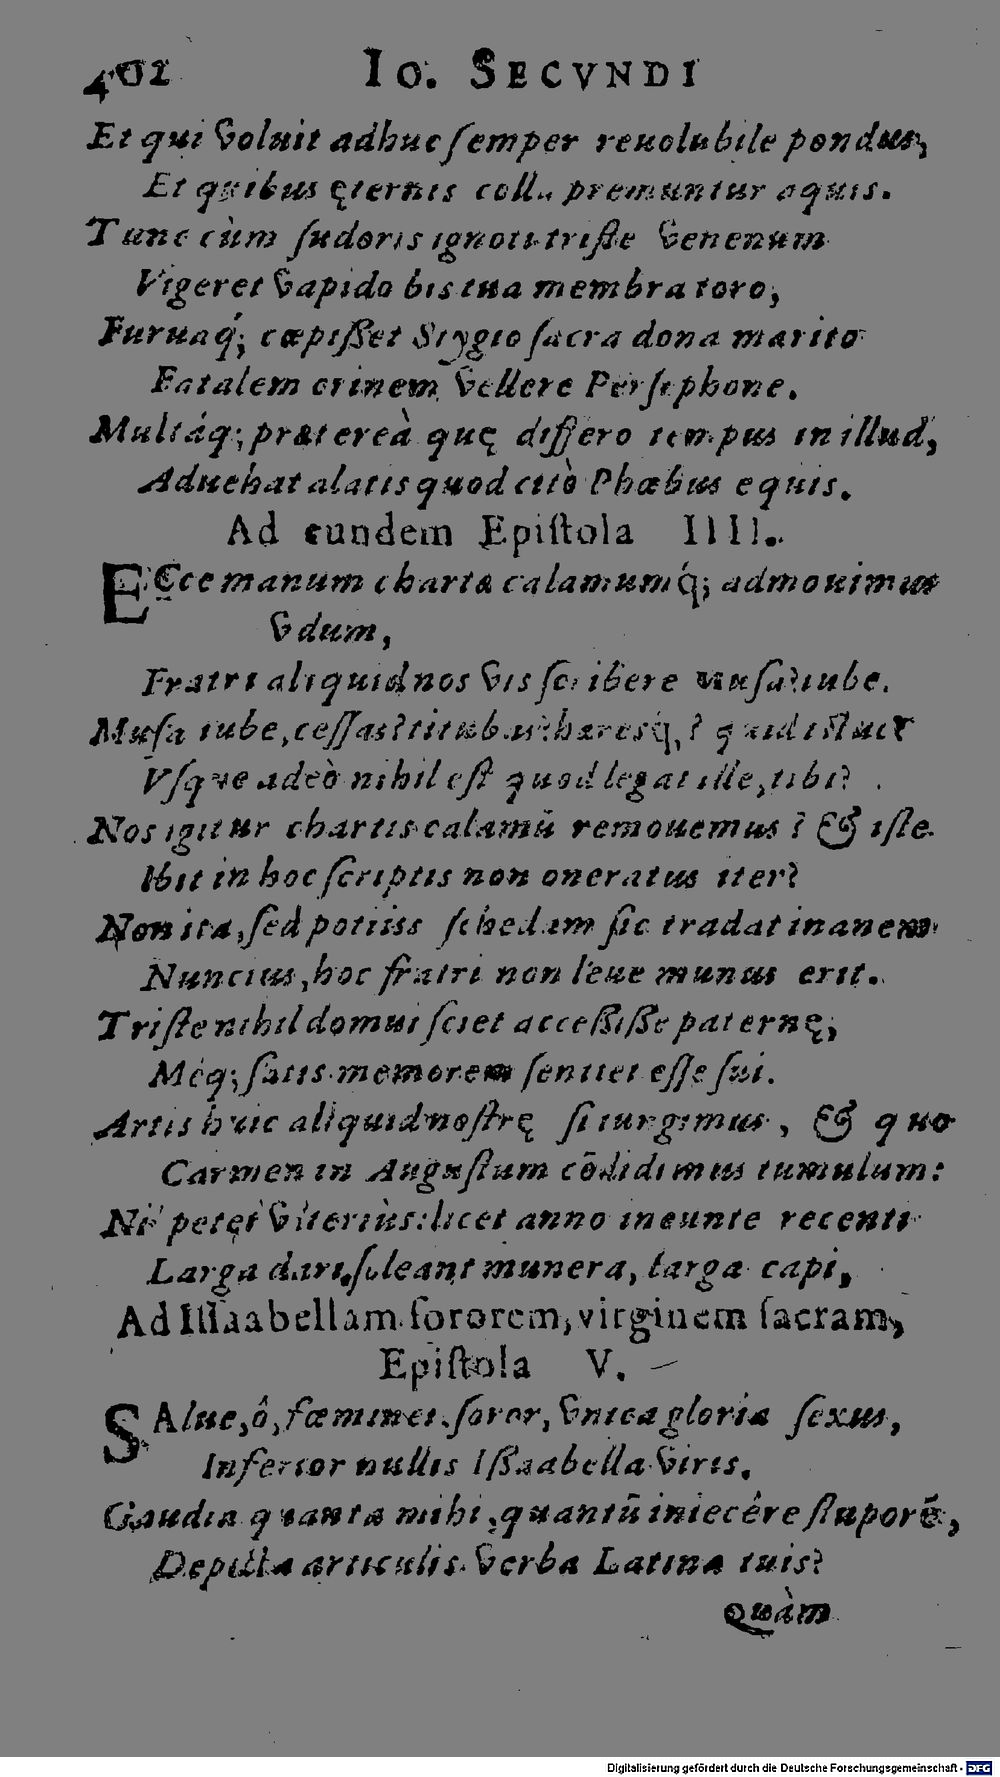 402 IO. SECVNDI
Et qui voluit adhuc ſemper reuolubile pondus,
Et quibus ęternis colla premuntur aquis.
Tunc cùm ſudoris ignoti triſte venenum
Vigeret vapido bis tua membra toro,
Furuaq́; cœpiſſet Stygio ſacra dona marito
Fatalem crinem vellere Perſephone.
Multáq; prætereà quę differo tempus in illud,
Aduehat alatis quod citò Phœbus equis.
Ad eundem Epiſtola IIII.
ECce manum chartæ calamumq́; admouimus
vdum,
Fratri aliquid nos vis ſcribere muſa? iube.
Muſa iube, ceſſas? titubas? hæresq́,? quid iſtuc?
Vſque adeò nihil eſt quod legat ille, tibi?
Nos igitur chartis calamū remouemus? & iſte
Ibit in hoc ſcriptis non oneratus iter?
Non ita, ſed potiùs ſchedam ſic tradat inanem
Nuncius, hoc fratri non leue munus erit.
Triſte nihil domui ſciet acceßiſſe paternę,
Méq; ſatis memorem ſentiet eſſe ſui.
Artis huic aliquid noſtrę ſi iungimus, & quo
Carmen in Auguſtum cōdidimus tumulum:
Nil petet vlteriùs: licet anno ineunte recenti
Larga dari ſoleant munera, larga capi,
Ad Iſſaabellam ſororem, virginem ſacram,
Epiſtola V.
SAlue, ô, fœminei ſoror, vnica gloria ſexus,
Inferior nullis Iſſaabella viris.
Gaudia quanta mihi, quantū iniecêre ſtuporē,
Depicta articulis verba Latina tuis?
Quàm
Digitalisierung gefördert durch die Deutsche Forschungsgemeinschaft - DFG